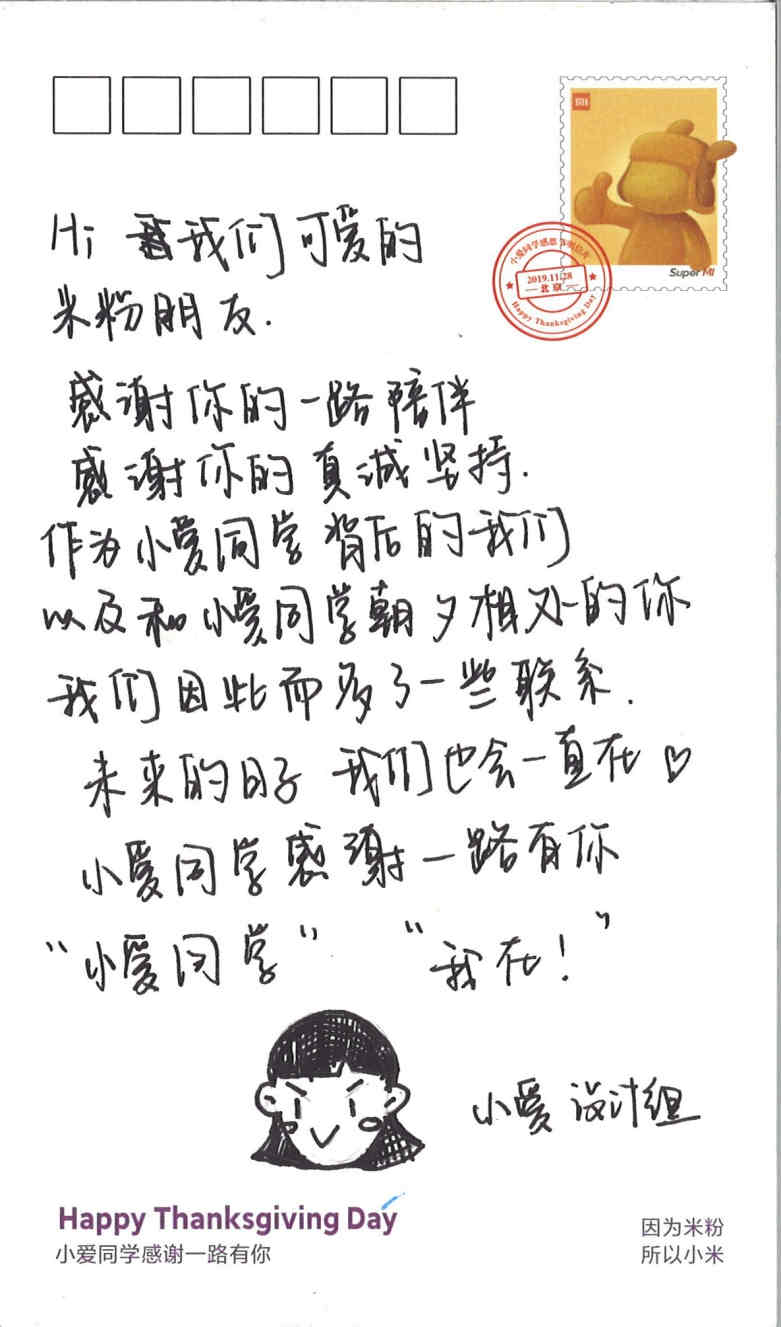 MI
Super MI
小爱同学感恩节明信片
2019.11.28
北京
Happy Thanksgiving Day
Hi 我们可爱的
米粉朋友.
感谢你的一路陪伴
感谢你的真诚坚持.
作为小爱同学背后的我们
以及和小爱同学朝夕相处的你
我们因此而多了一些联系.
未来的日子 我们也会一直在♡
小爱同学感谢一路有你
“小爱同学” “我在!”
小爱 设计组
Happy Thanksgiving Day
小爱同学感谢一路有你
因为米粉
所以小米